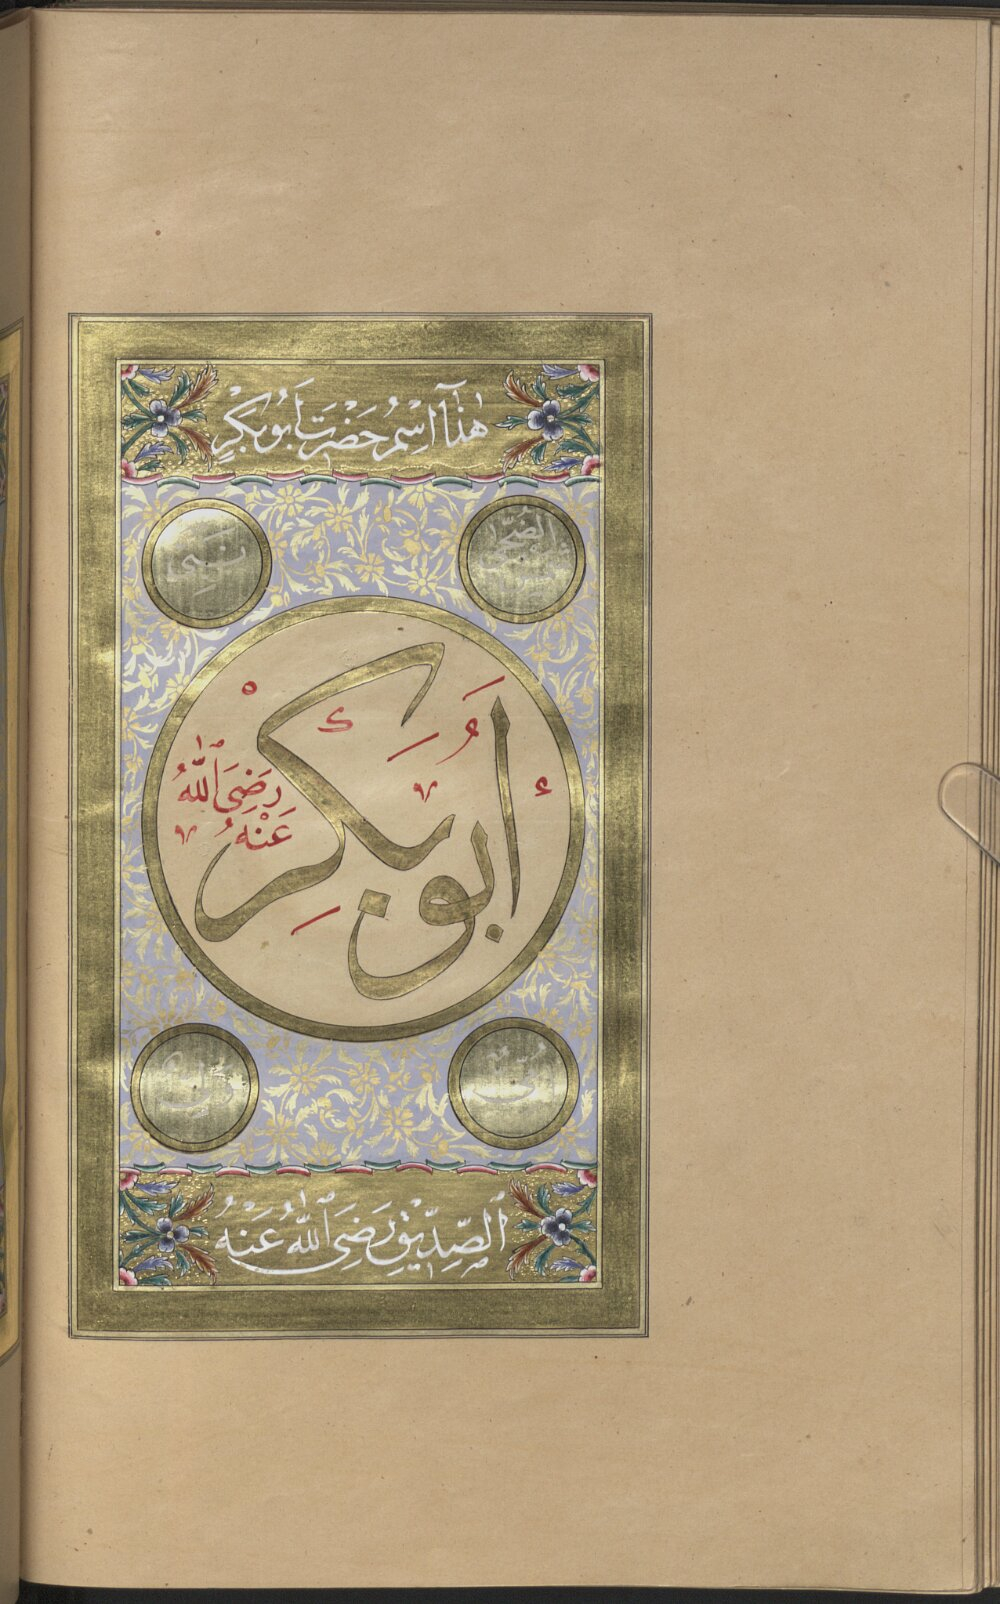 هٰذَا اِسْمُ حَضْرَتِ اَبُوبَكْرٍ
اَبُو بَكْرِ
رَضِىَ اللّٰهُ
عَنْهُ
اَلصِّدِّيقِ رَضِىَ اللّٰهُ عَنْهُ